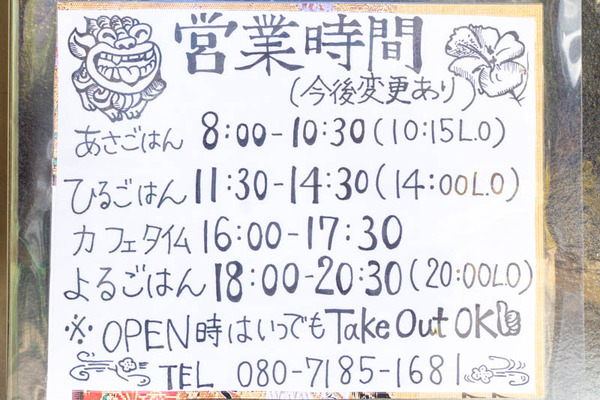 営業時間
(今後変更あり)
あさごはん 8:00-10:30(10:15L.O)
ひるごはん 11:30-14:30(14:00L.O)
カフェタイム 16:00-17:30
よるごはん 18:00-20:30(20:00L.O)
※ OPEN時はいつでもTake Out OK
TEL 080-7185-1681